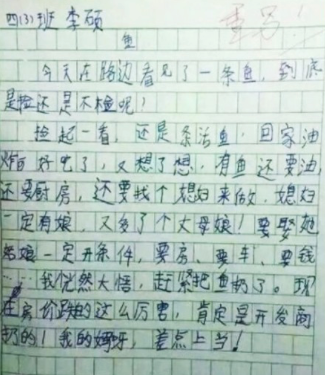 四(3)班 李硕
重写!
鱼
今天在路边看见了一条鱼,到底
是捡还是不捡呢!
捡起一看,还是条活鱼,回家油
炸百好吃了,又想了想,有鱼还要油,
还要厨房,还要找个媳妇来做,媳妇
一定有娘,又多了个丈母娘!要娶她
姑娘一定开条件,要房、要车、要钱
……我恍然大悟,赶紧把鱼扔了。现
在房价跌的这么厉害,肯定是开发商
扔的!我的妈呀,差点上当!